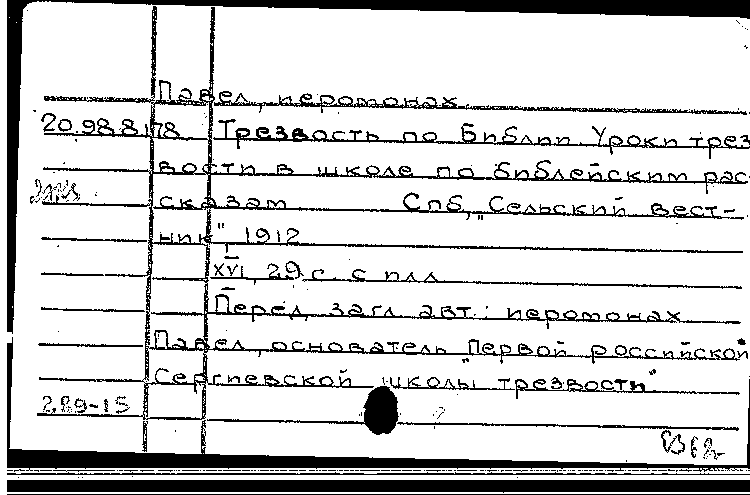 Павел, иеромонах.
20.98.8.178 Трезвость по Библии. Уроки трез
вости в школе по библейским рас-
сказам. Спб, "Сельский вест-
ник", 1912.
XVI, 29 с. с илл.
Перед загл. авт.: иеромонах
Павел, основатель "Первой российской
Сергиевской школы трезвости"
289-15